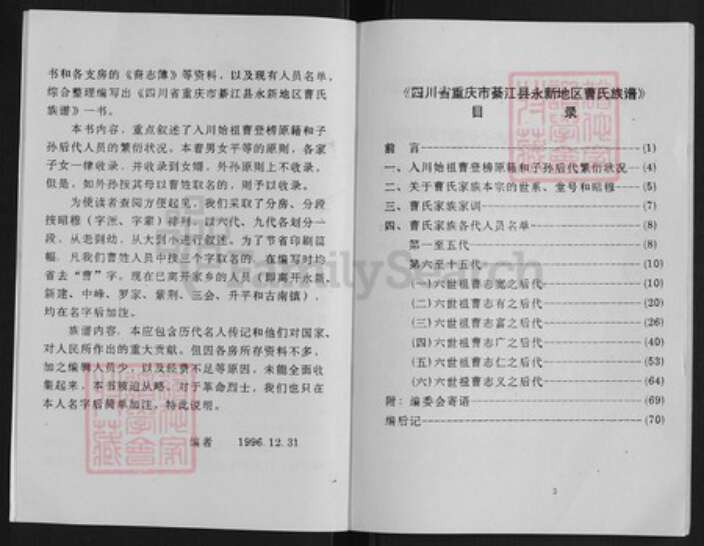 书和各支房的《奔志薄》等资料,以及现有人员名单,
综合整理编写出《四川省重庆市綦江县永新地区曹氏
族谱》一书。
本书内容,重点叙述了入川始祖曹登榜原籍和子
孙后代人员的繁衍状况。本着男女平等的原则,各家
子女一律收录,并收录到女婿,外孙原则上不收录,
但是,如外孙按其母以曹姓取名的,则予以收录。
为使读者查阅方便起见,我们采取了分房、分段
按昭穆(字派、字辈)排列,以六代、九代各划分一
段,从老到幼,从大到小进行叙述。为了节省印刷篇
幅,凡我们曹姓人员中按三个字取名的,在编写时均
省去“曹”字。现在已离开家乡的人员(即离开永新、
新建、中峰、罗家、紫荆、三会、升平和古南镇),
均在名字后加注。
族谱内容,本应包含历代名人传记和他们对国家、
对人民所作出的重大贡献。但因各房所存资料不多,
加之编辑人员少,以及经费不足等原因,未能全面收
集起来,本书被迫从略。对于革命烈士,我们也只在
本人名字后简单加注。特此说明。
编者 1996.12.31
《四川省重庆市綦江县永新地区曹氏族谱》
目 录
前 言 (1)
一、入川始祖曹登榜原籍和子孙后代繁衍状况 (4)
二、关于曹氏家族本宗的世系、堂号和昭穆 (5)
三、曹氏家族家训 (7)
四、曹氏家族各代人员名单 (8)
第一至五代 (8)
第六至十五代 (10)
(一)六世祖曹志宽之后代 (10)
(二)六世祖曹志有之后代 (20)
(三)六世祖曹志富之后代 (26)
(四)六世祖曹志广之后代 (40)
(五)六世祖曹志仁之后代 (53)
(六)六世祖曹志义之后代 (64)
附:编委会寄语 (69)
编后记 (70)
3
FamilySearch